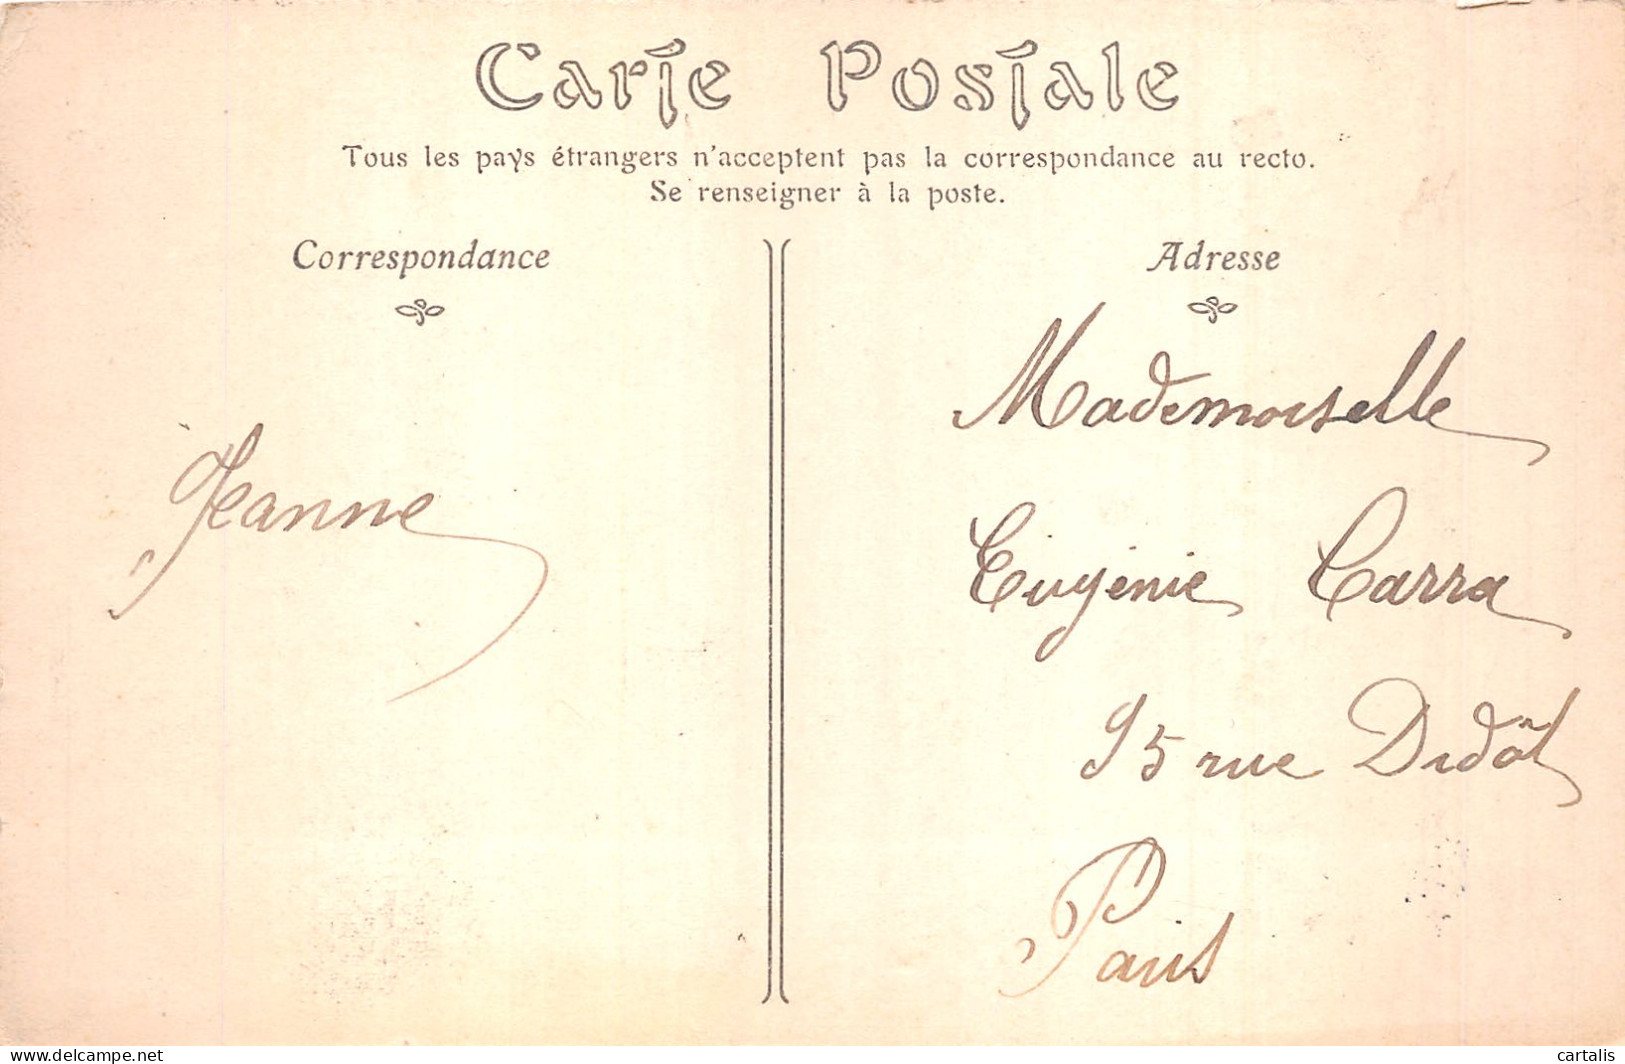 Carte Postale
Tous les pays étrangers n'acceptent pas la correspondance au recto.
Se renseigner à la poste.
Correspondance
Adresse
Jeanne
Mademoiselle
Eugénie Carra
95 rue Didôt
Paris
delcampe.net
cartalis